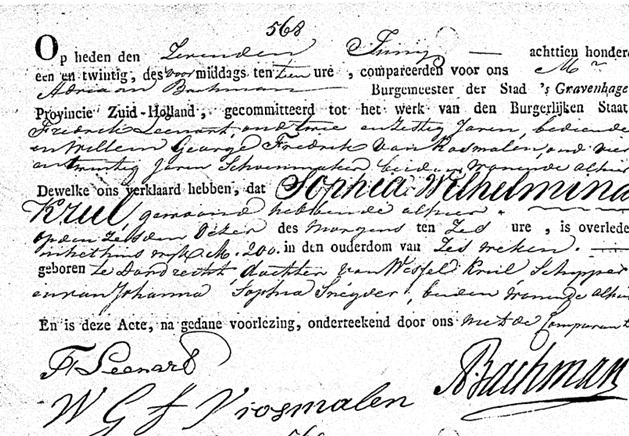 568
Op heden den Zevenden Juny — achttien honderd
een en twintig, des voor middags ten tien ure, compareerden voor ons Mr
Adriaan Bachman — Burgemeester der Stad 's Gravenhage
Provincie Zuid-Holland, gecommitteerd tot het werk van den Burgerlijken Staat
Fredrik Leenart, oud drie en zestig Jaren, bediende
en Willem George Fredrik van Rosmalen, oud vier
en twintig Jaren Schoenmaker beiden wonende alhier
Dewelke ons verklaard hebben, dat Sophia Wilhelmina
Krul gewoond hebbende alhier
op den Zesden dezer des morgens ten Zes ure, is overlede
in het huis wyk No. 200. in den ouderdom van Zes weken. —
geboren te Dordrecht, dochter van Wessel Kruil Schipper
en van Johanna Sophia Snyder, beiden wonende alhier
En is deze Acte, na gedane voorlezing, onderteekend door ons met de Comparant
F Leenart
ABachman
W G F V rosmalen